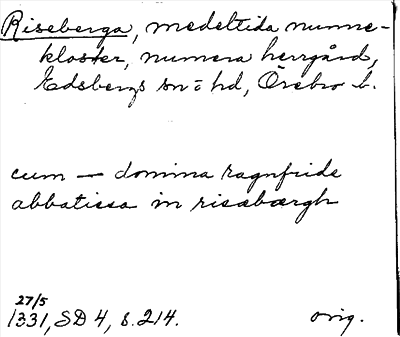 Riseberga, medeltida nunne-
kloster, numera herrgård,
Edsbergs sn o hd, Örebro l.
cum — domina ragnfride
abbatissa in risabærgh
27/5
1331, SD 4, s. 214. orig.